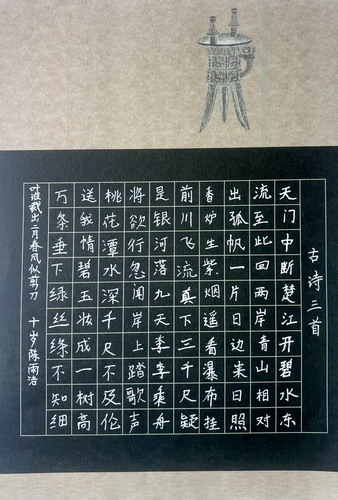 古诗三首
天门中断楚江开碧水东
流至此回两岸青山相对
出孤帆一片日边来日照
香炉生紫烟遥看瀑布挂
前川飞流直下三千尺疑
是银河落九天李李乘舟
将欲行忽闻岸上踏歌声
桃花潭水深千尺不及伦
送我情碧玉妆成一树高
万条垂下绿丝绦不知细
叶谁裁出二月春风似剪刀 十岁陈雨浩